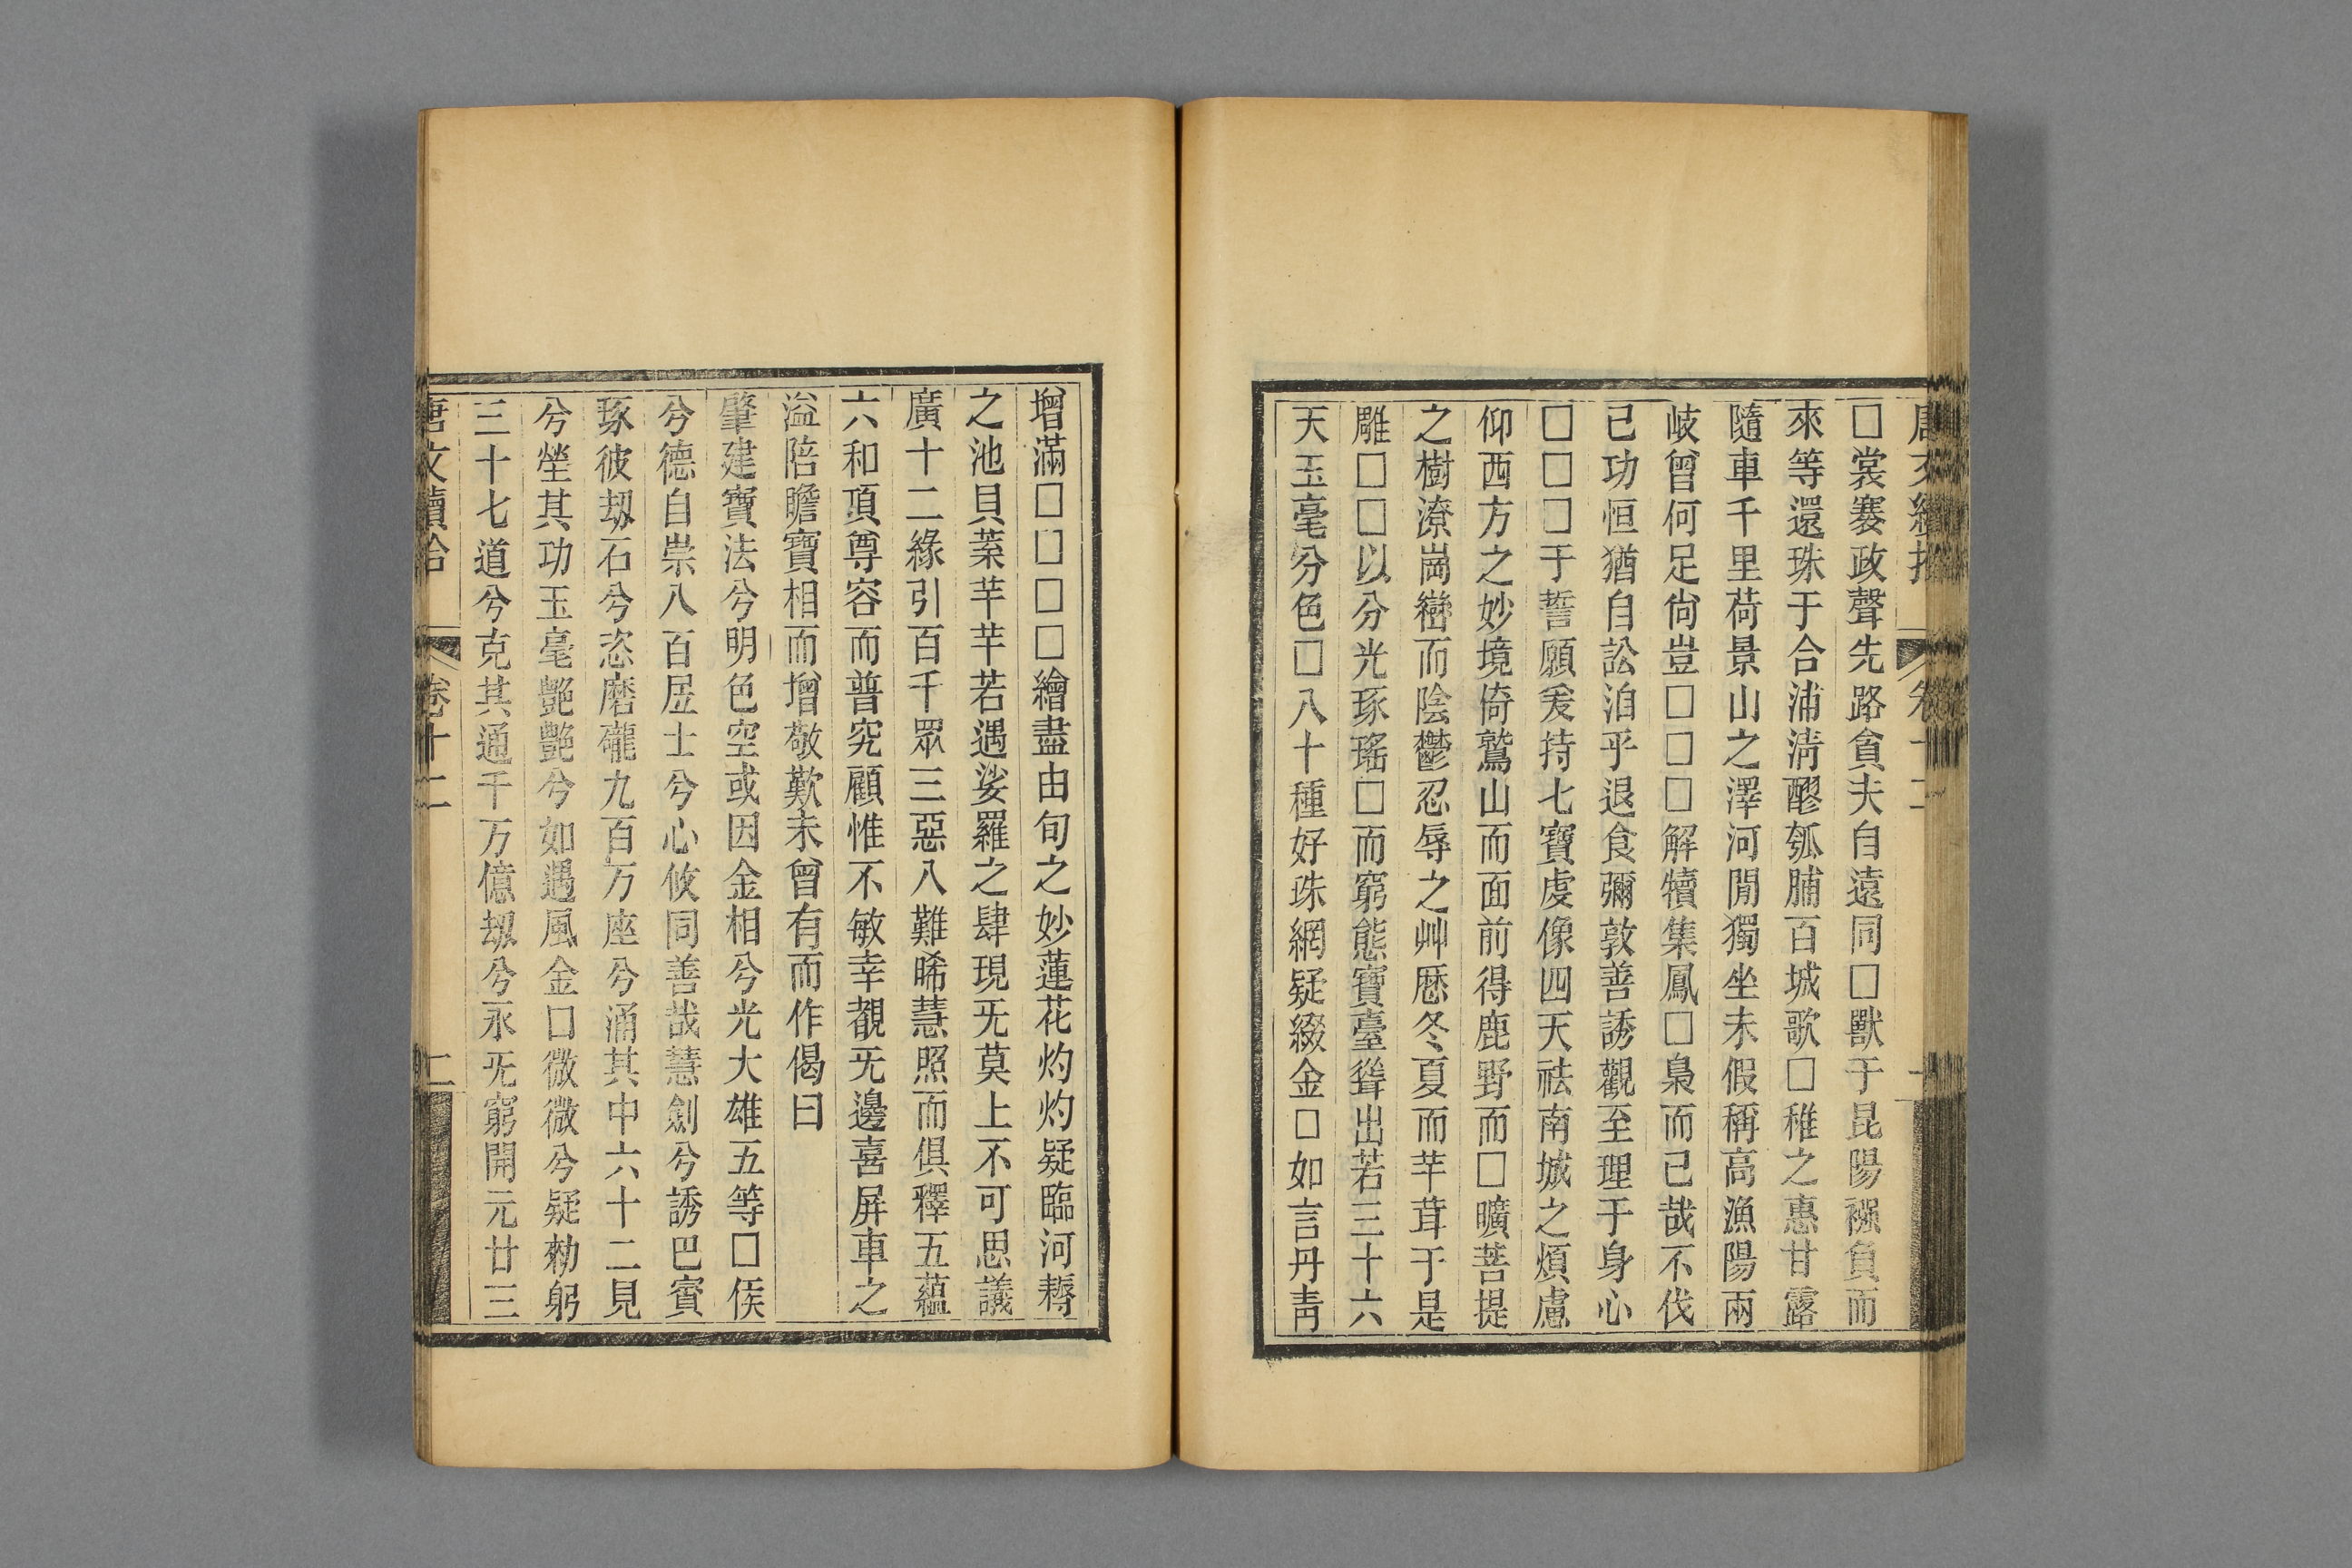 □裳褰政聲先路貪夫自遠同□獸于昆陽襁負而
來等還珠于合浦淸醪瓠脯百城歌□稚之惠甘露
隨車千里荷景山之澤河閒獨坐未假稱高漁陽兩
岐曾何足尙豈□□□解犢集鳳□梟而已哉不伐
已功恒猶自訟洎乎退食彌敦善誘觀至理于身心
□□□于誓願爰持七寶虔像四天祛南城之煩慮
仰西方之妙境倚鷲山而面前得鹿野而□曠菩提
之樹潦崗巒而陰鬱忍辱之艸歷冬夏而芊茸于是
雕□□以分光琢瑤□而窮態寶臺聳出若三十六
天玉毫分色□八十種好珠網疑綴金□如言丹靑
增滿□□□□繪盡由旬之妙蓮花灼灼疑臨河耨
之池貝葉芊芊若遇娑羅之肆現旡莫上不可思議
廣十二緣引百千眾三惡八難晞慧照而俱釋五蘊
六和頂尊容而普究顧惟不敏幸覩旡邊喜屏車之
溢陪瞻寶相而增敬歎未曾有而作偈曰
肇建寶法兮明色空或因金相兮光大雄五等□侯
兮德自崇八百居士兮心攸同善哉慧劍兮誘巴賓
琢彼刼石兮恣磨礲九百万座兮涌其中六十二見
兮塋其功玉毫艶艶兮如遇風金口微微兮疑勑躬
三十七道兮克其通千万億刼兮永旡窮開元廿三
唐文續拾 卷十二 二